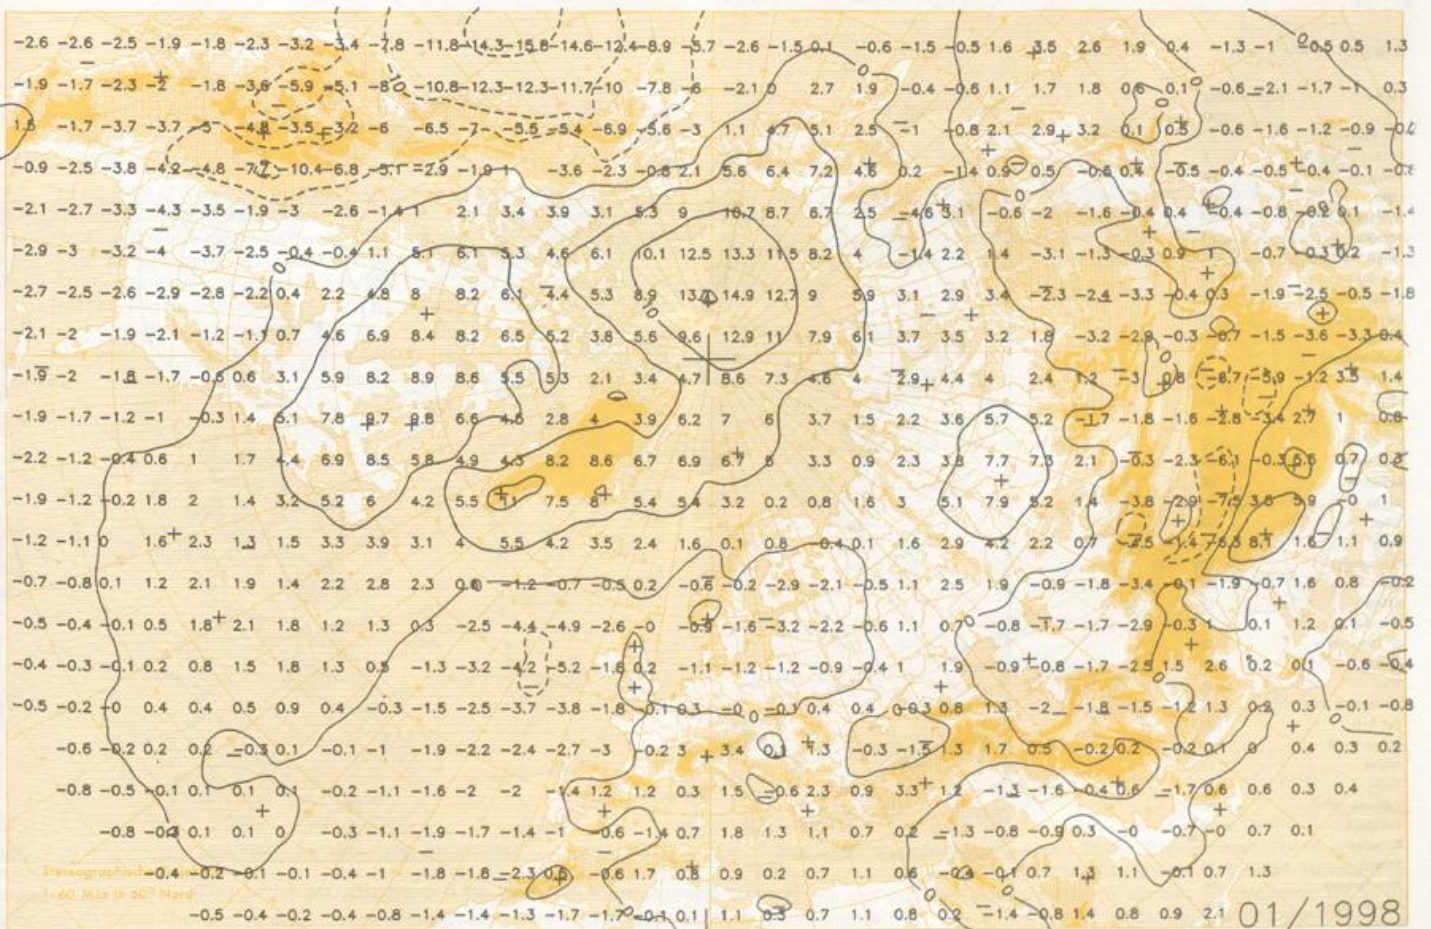 -2.6 -2.6 -2.5 -1.9 -1.8 -2.3 -3.2 -3.4 -7.8 -11.8 -14.3 -15.8 -14.6 -12.4 -8.9 -5.7 -2.6 -1.5 0.1 -0.6 -1.5 -0.5 1.6 3.5 2.6 1.9 0.4 -1.3 -1 -0.5 0.5 1.3
-1.9 -1.7 -2.3 -2 -1.8 -3.6 -5.9 -5.1 -8 -10.8 -12.3 -12.3 -11.7 -10 -7.8 -6 -2.1 0 2.7 1.9 -0.4 -0.6 1.1 1.7 1.8 0.6 0.1 -0.6 -2.1 -1.7 -1 0.3
1.5 -1.7 -3.7 -3.7 -5 -4.8 -3.5 -3.2 -6 -6.5 -7 -5.5 -5.4 -6.9 -5.6 -3 1.1 4.7 5.1 2.5 -1 -0.8 2.1 2.9 3.2 0.1 0.5 -0.6 -1.6 -1.2 -0.9
-0.9 -2.5 -3.8 -4.2 -4.8 -7.7 -10.4 -6.8 -5.1 -2.9 -1.9 1 -3.6 -2.3 -0.6 2.1 5.6 6.4 7.2 4.6 0.2 -1.4 0.9 0.5 -0.6 0.4 -0.5 -0.4 -0.5 -0.4 -0.1
-2.1 -2.7 -3.3 -4.3 -3.5 -1.9 -3 -2.6 -1.4 1 2.1 3.4 3.9 3.1 5.3 9 10.7 8.7 6.7 2.5 -4.6 3.1 -0.6 -2 -1.6 -0.4 0.4 -0.4 -0.8 -0.2 0.1 -1.4
-2.9 -3 -3.2 -4 -3.7 -2.5 -0.4 -0.4 1.1 5.1 6.1 5.3 4.6 6.1 10.1 12.5 13.3 11.5 8.2 4 -1.4 2.2 1.4 -3.1 -1.3 -0.3 0.9 1 -0.7 -0.3 0.2 -1.3
-2.7 -2.5 -2.6 -2.9 -2.8 -2.2 0.4 2.2 4.8 8 8.2 6.1 4.4 5.3 8.9 14.9 12.7 9 5.9 3.1 2.9 3.4 -2.3 -2.4 -3.3 -0.4 0.3 -1.9 -2.5 -0.5 -1.8
-2.1 -2 -1.9 -2.1 -1.2 -1.1 0.7 4.6 6.9 8.4 8.2 6.5 5.2 3.8 5.6 9.6 12.9 11 7.9 6.1 3.7 3.5 3.2 1.8 -3.2 -2.9 -0.3 -0.7 -1.5 -3.6 -3.3 0.4
-1.9 -2 -1.8 -1.7 -0.6 0.6 3.1 5.9 8.2 8.9 8.6 5.5 5.3 2.1 3.4 4.7 8.6 7.3 4.6 4 2.9 4.4 4 2.4 1.2 -3 0.8 -6.7 -5.9 -1.2 3.5 1.4
-1.9 -1.7 -1.2 -1 -0.3 1.4 5.1 7.8 9.7 9.8 6.6 4.6 2.8 4 3.9 6.2 7 6 3.7 1.5 2.2 3.6 5.7 5.2 -1.7 -1.8 -1.6 -2.8 -3.4 2.7 1 0.8
-2.2 -1.2 -0.4 0.6 1 1.7 4.4 6.9 8.5 5.8 4.9 4.3 8.2 8.6 6.7 6.9 6.7 6 3.3 0.9 2.3 3.8 7.7 7.3 2.1 -0.3 -2.3 -6.1 -0.3 0.7
-1.9 -1.2 -0.2 1.8 2 1.4 3.2 5.2 6 4.2 5.5 7.5 8 5.4 5.4 3.2 0.2 0.8 1.6 3 5.1 7.9 5.2 1.4 -3.8 -2.9 -7.5 3.8 5.9 -0 1
-1.2 -1.1 0 1.6 2.3 1.3 1.5 3.3 3.9 3.1 4 5.5 4.2 3.5 2.4 1.6 0.1 0.8 -0.4 0.1 1.6 2.9 4.2 2.2 0.7 -1.4 8.1 1.6 1.1 0.9
-0.7 -0.8 0.1 1.2 2.1 1.9 1.4 2.2 2.8 2.3 0.6 -1.2 -0.7 -0.5 0.2 -0.6 -0.2 -2.9 -2.1 -0.5 1.1 2.5 1.9 -0.9 -1.8 -3.4 -0.1 -1.9 -0.7 1.6 0.8 -0.2
-0.5 -0.4 -0.1 0.5 1.8 2.1 1.8 1.2 1.3 0.3 -2.5 -4.4 -4.9 -2.6 -0 -0.9 -1.6 -3.2 -2.2 -0.6 1.1 0.7 -0.8 -1.7 -1.7 -2.9 -0.3 1 0.1 1.2 0.1 -0.5
-0.4 -0.3 -0.1 0.2 0.8 1.5 1.8 1.3 0.5 -1.3 -3.2 -4.2 -5.2 -1.8 0.2 -1.1 -1.2 -1.2 -0.9 -0.4 1 1.9 -0.9 -0.8 -1.7 -2.5 1.5 2.6 0.2 0.1 -0.6 -0.4
-0.5 -0.2 -0 0.4 0.4 0.5 0.9 0.4 -0.3 -1.5 -2.5 -3.7 -3.8 -1.8 -0.1 0.3 -0 -0.1 0.4 0.4 -0.3 0.8 1.3 -2 -1.8 -1.5 -1.2 1.3 0.2 0.3 -0.1 -0.8
-0.6 -0.2 0.2 0.2 -0.3 0.1 -0.1 -1 -1.9 -2.2 -2.4 -2.7 -3 -0.2 3 3.4 0.1 1.3 -0.3 -1.5 1.3 1.7 0.5 -0.2 0.2 -0.2 0.1 0 0.4 0.3 0.2
-0.8 -0.5 -0.1 0.1 0.1 0.1 -0.2 -1.1 -1.6 -2 -2 -1.4 1.2 1.2 0.3 1.5 -0.6 2.3 0.9 3.3 1.2 -1.3 -1.6 -0.4 0.6 -1.7 0.6 0.6 0.3 0.4
-0.8 -0.3 0.1 0.1 0 -0.3 -1.1 -1.9 -1.7 -1.4 -1 -0.6 -1.4 0.7 1.8 1.3 1.1 0.7 0.2 -1.3 -0.8 -0.9 0.3 -0 -0.7 -0 0.7 0.1
Stereographische
-0.4 -0.2 -0.1 -0.1 -0.4 -1 -1.8 -1.8 -2.3 0.6 -0.6 1.7 0.8 0.9 0.2 0.7 1.1 0.6 -0.4 -0.1 0.7 1.3 1.1 -0.1 0.7 1.3
1:60 Mio in 60° Nord
-0.5 -0.4 -0.2 -0.4 -0.8 -1.4 -1.4 -1.3 -1.7 -1.7 -0.1 0.1 1.1 0.3 0.7 1.1 0.8 0.2 -1.4 -0.8 1.4 0.8 0.9 2.1 01/1998